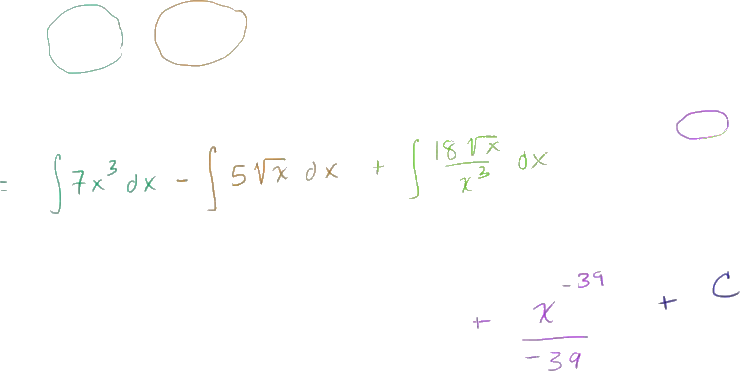 = ∫ 7x³ dx - ∫ 5√x dx + ∫ 18√x / x³ dx
+ x⁻³⁹ / -39 + C